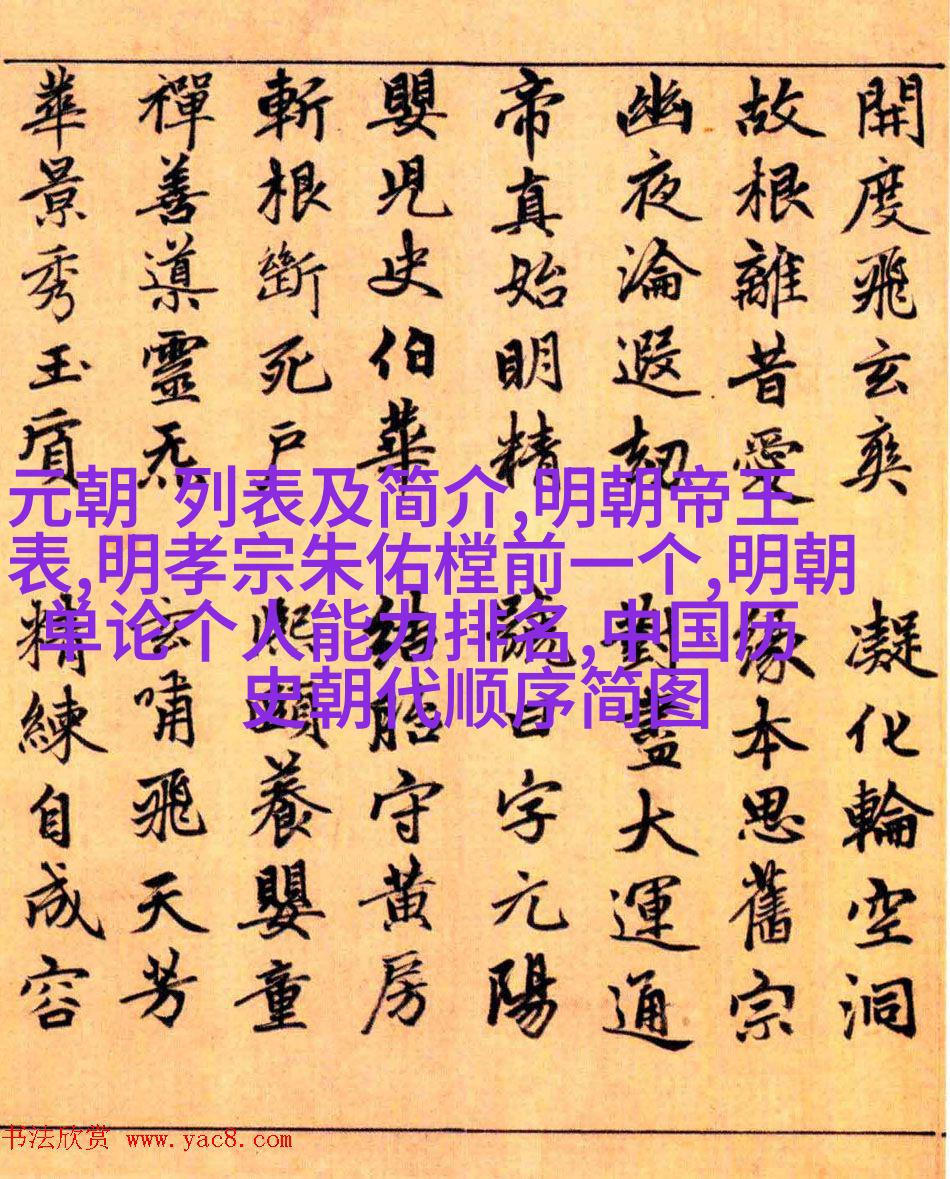 開度飛玄爽 凝化輪空洞
故根離昔愛 緣本思舊宗
幽夜淪遐劫 對盡大運通
帝真始明精 號曰字元陽
嬰兒史伯華 結胎守黃房
斬根斷死戶 熙頤養嬰童
禪善導靈炁 玄嘯飛天芳
華景秀玉質 精練自成容
元朝 列表及简介,明朝帝王
表,明孝宗朱佑樘前一个,明朝
单论个人能力排名,中国历
史朝代顺序简图
书法欣赏 www.yac8.com